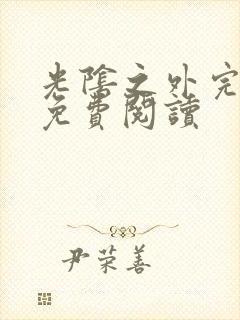 光陰之外完
免費閱讀
尹荣善